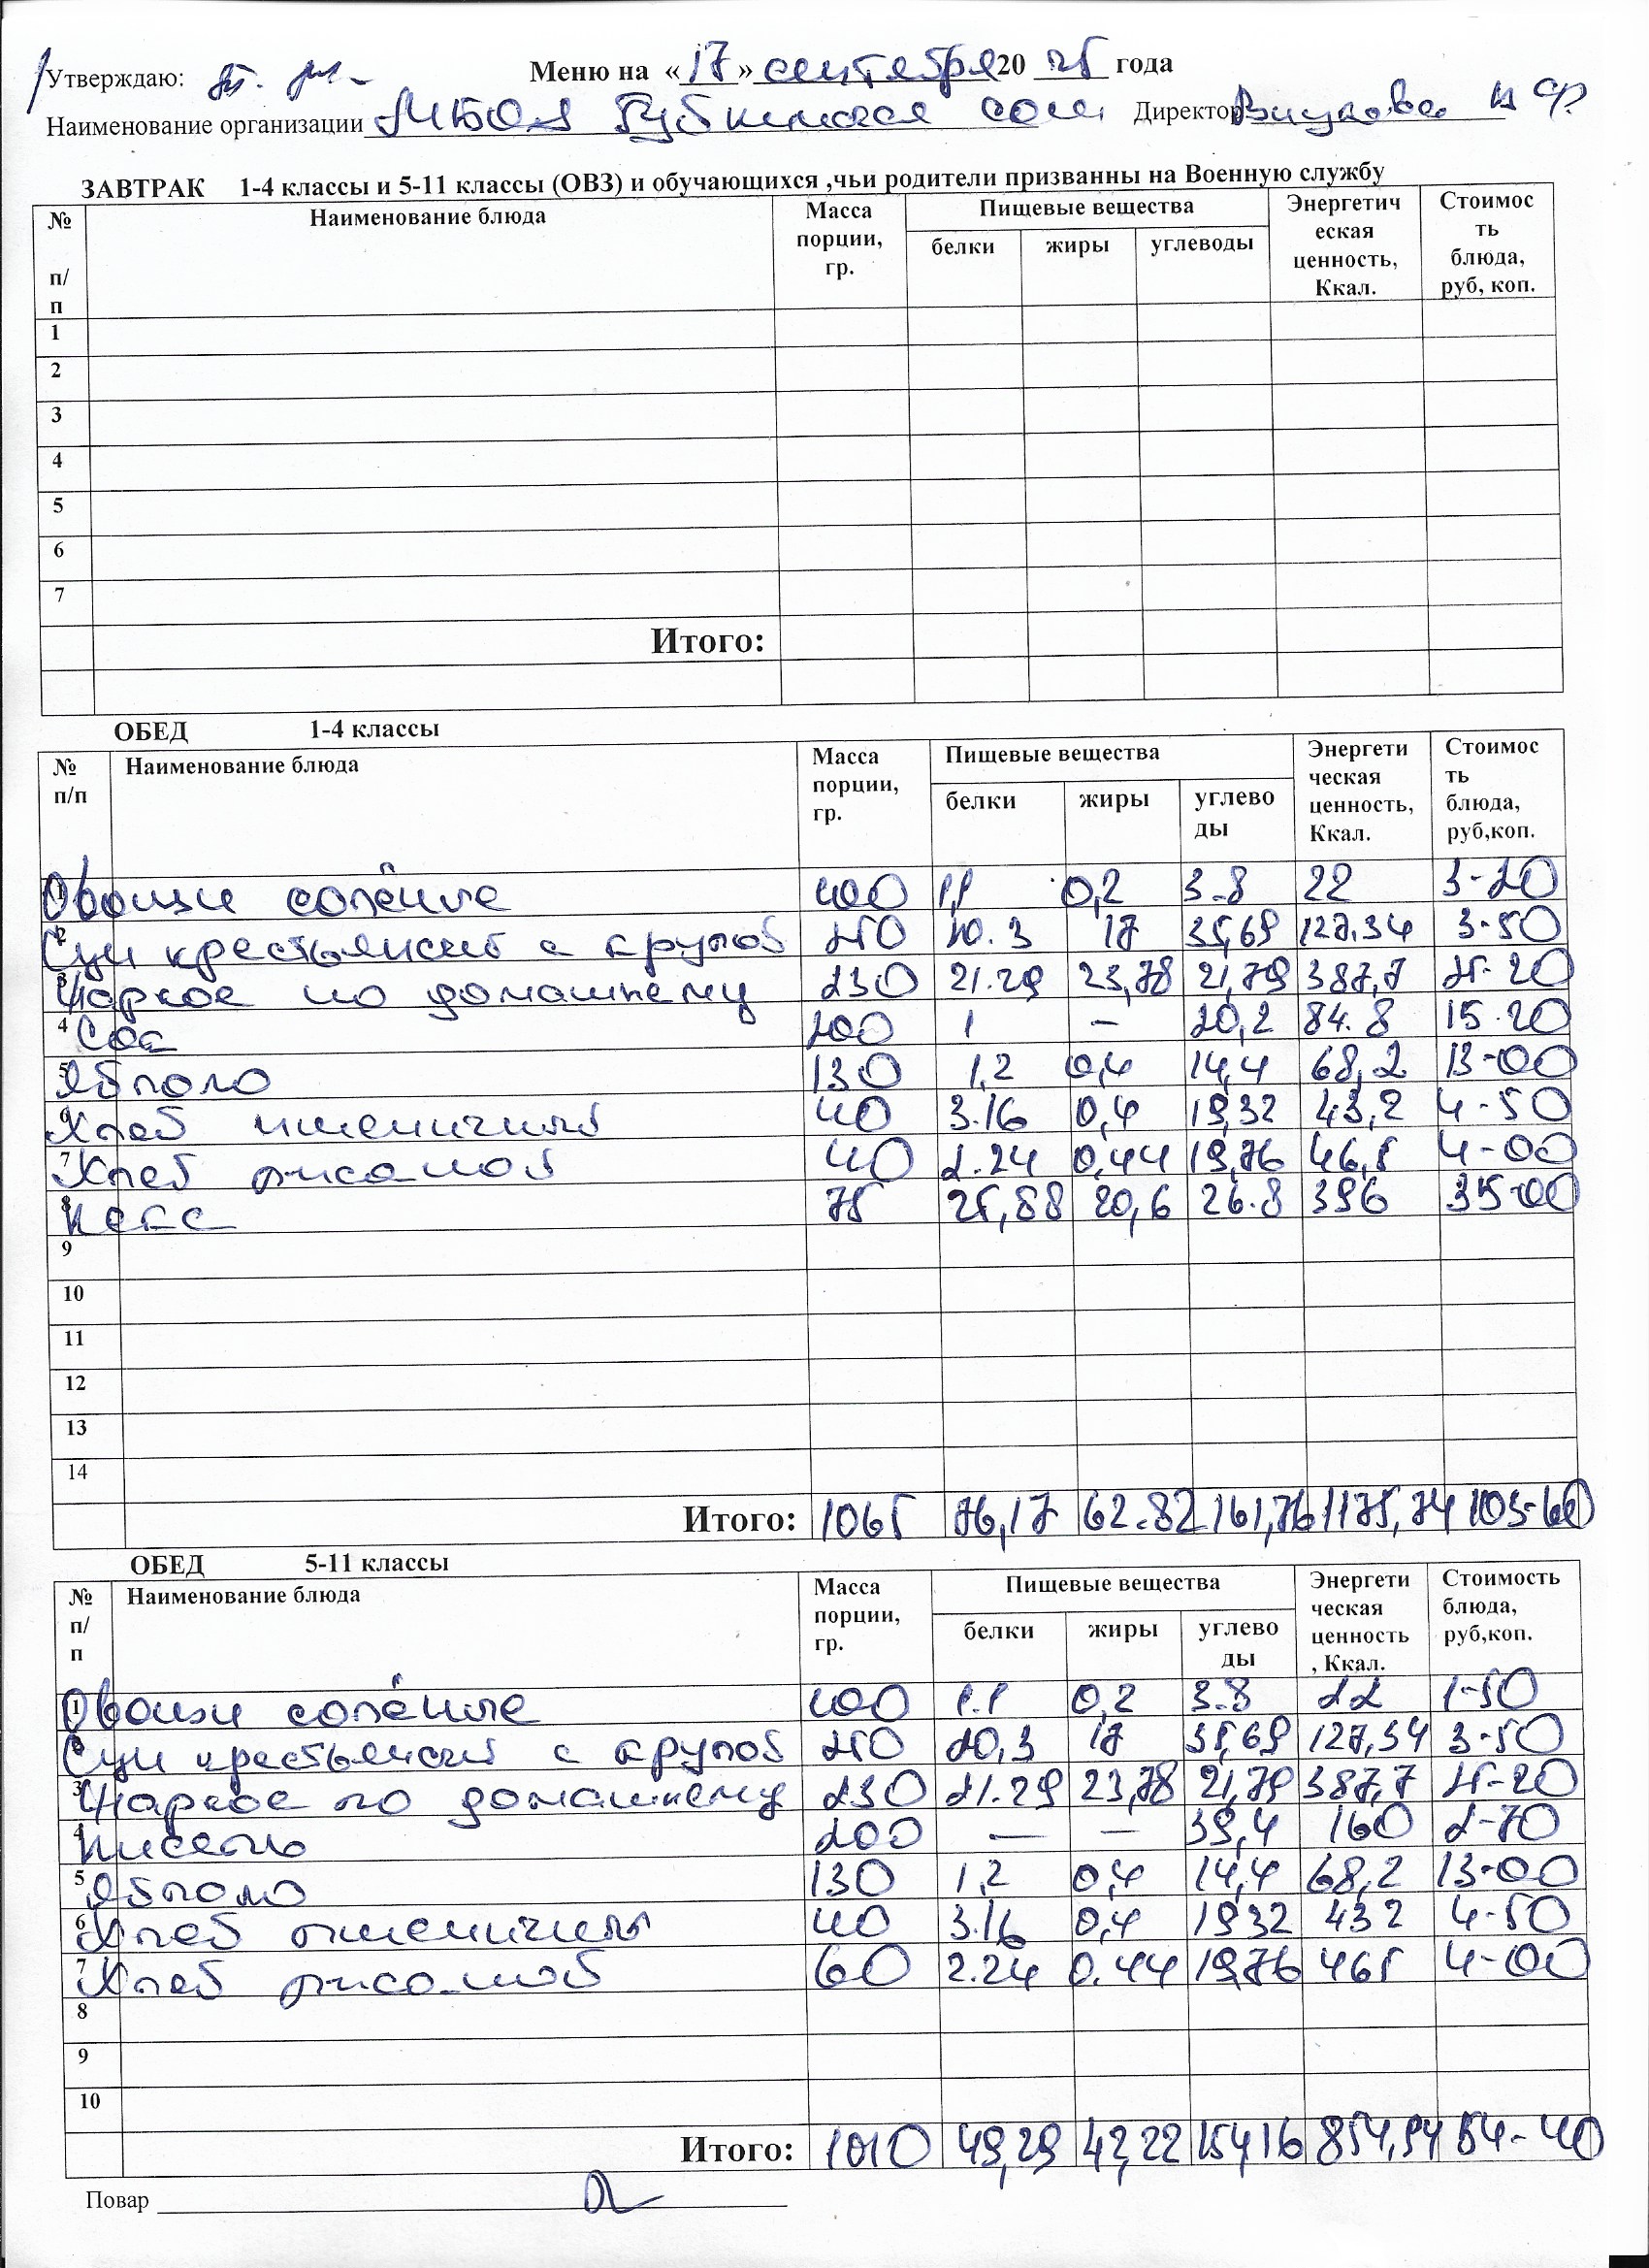 Утверждаю: Меню на «17» сентября 20 25 года
Наименование организации МБОУ Губинская сош Директор
ЗАВТРАК 1-4 классы и 5-11 классы (ОВЗ) и обучающихся ,чьи родители призванны на Военную службу
№ п/п Наименование блюда Масса порции, гр. Пищевые вещества Энергетическая ценность, Ккал. Стоимость блюда, руб, коп.
белки жиры углеводы
1
2
3
4
5
6
7
Итого:
ОБЕД 1-4 классы
№ п/п Наименование блюда Масса порции, гр. Пищевые вещества Энергетическая ценность, Ккал. Стоимость блюда, руб,коп.
белки жиры углеводы
1 Овощи солёные 100 1,1 0,2 3.8 22 3-20
2 Суп крестьянский с крупой 250 20.3 17 35,69 127,34 3-50
3 Жаркое по домашнему 230 21.29 23,78 21,79 387,7 25-20
4 Сок 200 1 – 20,2 84.8 15-20
5 Яблоко 130 1,2 0,4 14,4 68,2 13-00
6 Хлеб пшеничный 40 3.16 0,4 19,32 43,2 4-50
7 Хлеб ржаной 40 2.24 0,44 19,76 46,5 4-00
8 Кекс 75 25,88 20,6 26.8 396 35-00
9
10
11
12
13
14
Итого: 1065 76,17 62.82 161,76 1175,74 103-60
ОБЕД 5-11 классы
№ п/п Наименование блюда Масса порции, гр. Пищевые вещества Энергетическая ценность, Ккал. Стоимость блюда, руб,коп.
белки жиры углеводы
1 Овощи солёные 100 1.1 0,2 3.8 22 1-50
2 Суп крестьянский с крупой 250 20,3 17 35,69 127,34 3-50
3 Жаркое по домашнему 230 21.29 23,78 21,79 387,7 25-20
4 Кисель 200 — – 39,4 160 2-70
5 Яблоко 130 1,2 0,4 14,4 68,2 13-00
6 Хлеб пшеничный 40 3.16 0,4 1932 432 4-50
7 Хлеб ржаной 60 2.24 0.44 19,76 465 4-00
8
9
10
Итого: 1010 49,29 42,22 154,16 854,94 54-40
Повар